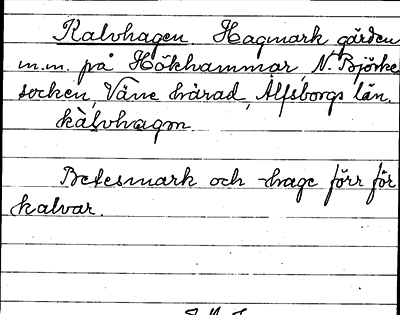 Kalvhagen Hagmark, gården
m.m. på Hökhammar, N. Björke
socken, Väne härad, Älfsborgs län.
kàlvhagən.
Betesmark och -hage förr för
kalvar.